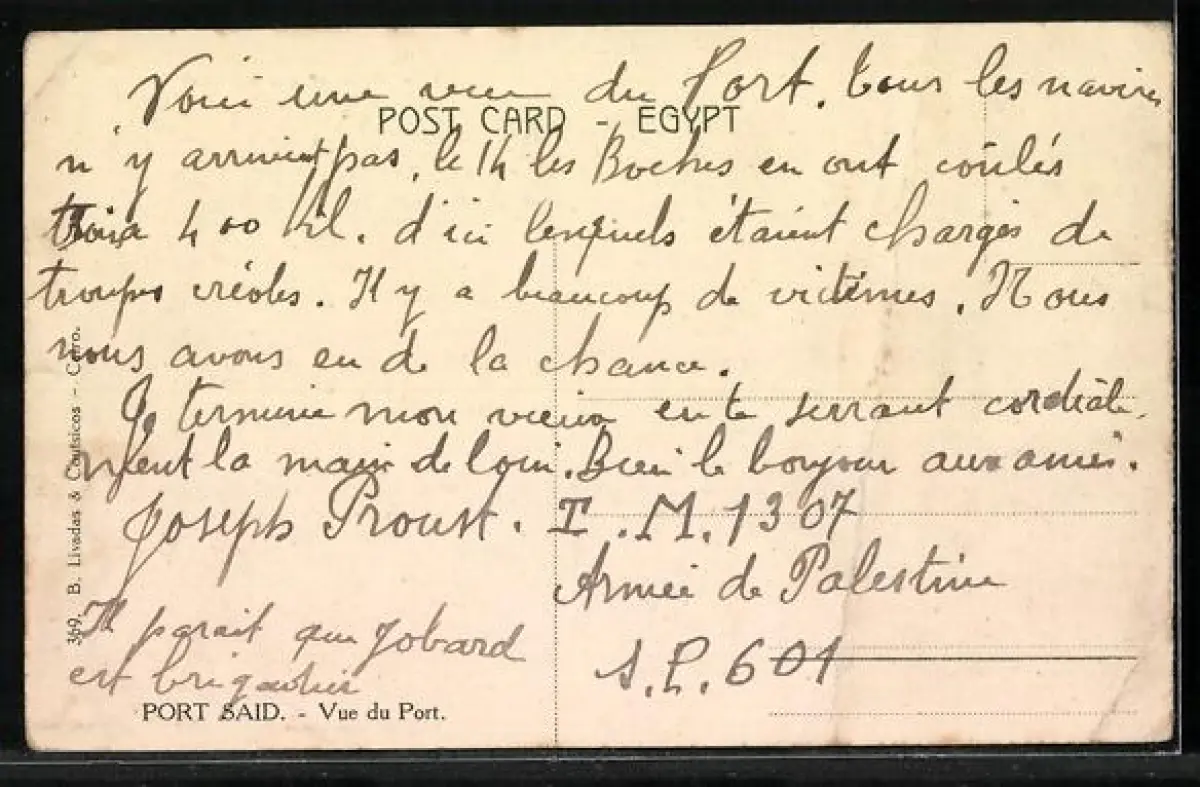 Voici une vue du Port. Tous les navires
POST CARD - EGYPT
n'y arrivent pas, le 14 les Boches en ont coulés
trois à 400 kil. d'ici lesquels étaient chargés de
troupes créoles. Il y a beaucoup de victimes. Nous
nous avons eu de la chance.
Je termine mon vieux en te serrant cordiale-
ment la main de loin. Bien le bonjour aux amis.
Joseph Proust. T.M. 1307
Armée de Palestine
S.P. 601
Il parait que Jobard
est brigadier
PORT SAID. - Vue du Port.
369. B. Livadas & Coutsicos - Cairo.